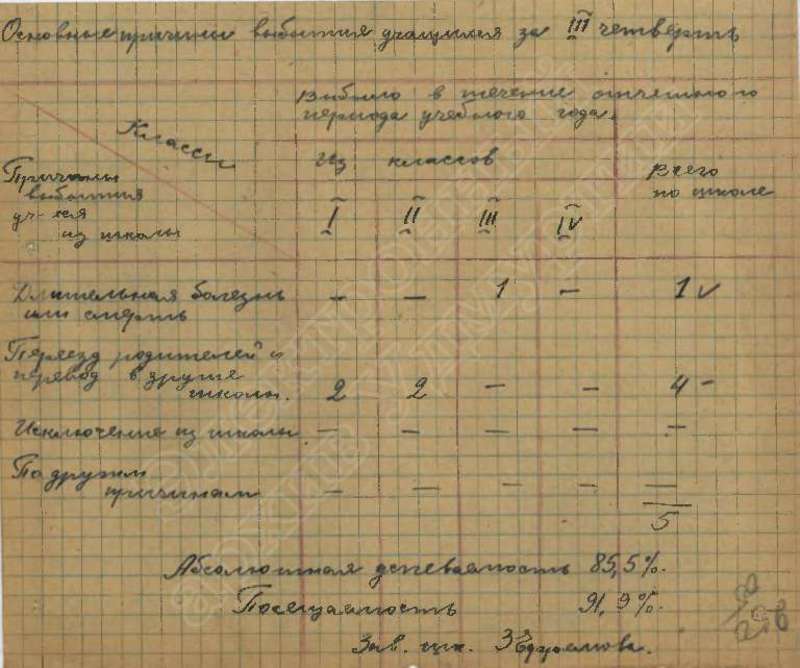 Основные причины выбытия учащихся за III четверть
Выбыло в течение отчетного
периода учебного года.
Классы
Из классов
Всего
по школе
Причины
выбытия
уч-хся
из школы
I II III IV
Длительная болезнь
или смерть
— — 1 — 1 v
Переезд родителей и
перевод в другие
школы. 2 2 — — 4 —
Исключение из школы. — — — — —
По другим
причинам — — — — —
5
Абсолютная успеваемость 85,5%.
Посещаемость 91,9%.
Зав. шк.